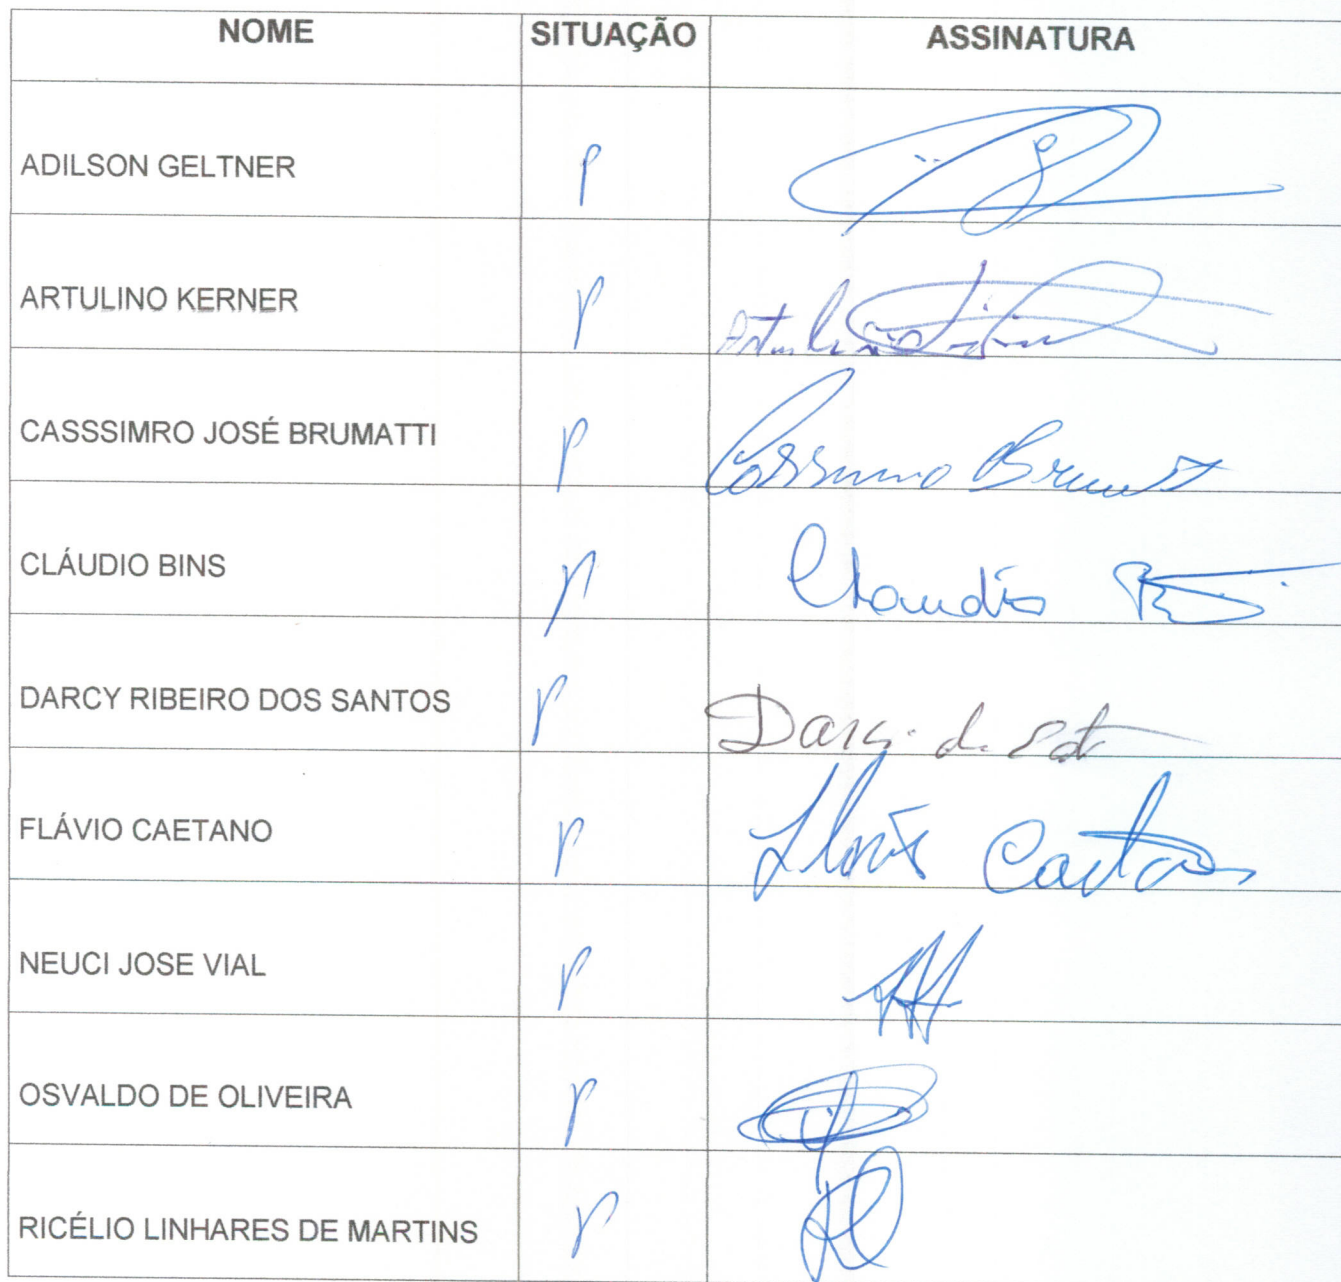 NOME SITUAÇÃO ASSINATURA
ADILSON GELTNER P
ARTULINO KERNER P
CASSSIMRO JOSÉ BRUMATTI P
CLÁUDIO BINS P Claudio
DARCY RIBEIRO DOS SANTOS P
FLÁVIO CAETANO P Caetano
NEUCI JOSE VIAL P
OSVALDO DE OLIVEIRA P
RICÉLIO LINHARES DE MARTINS P